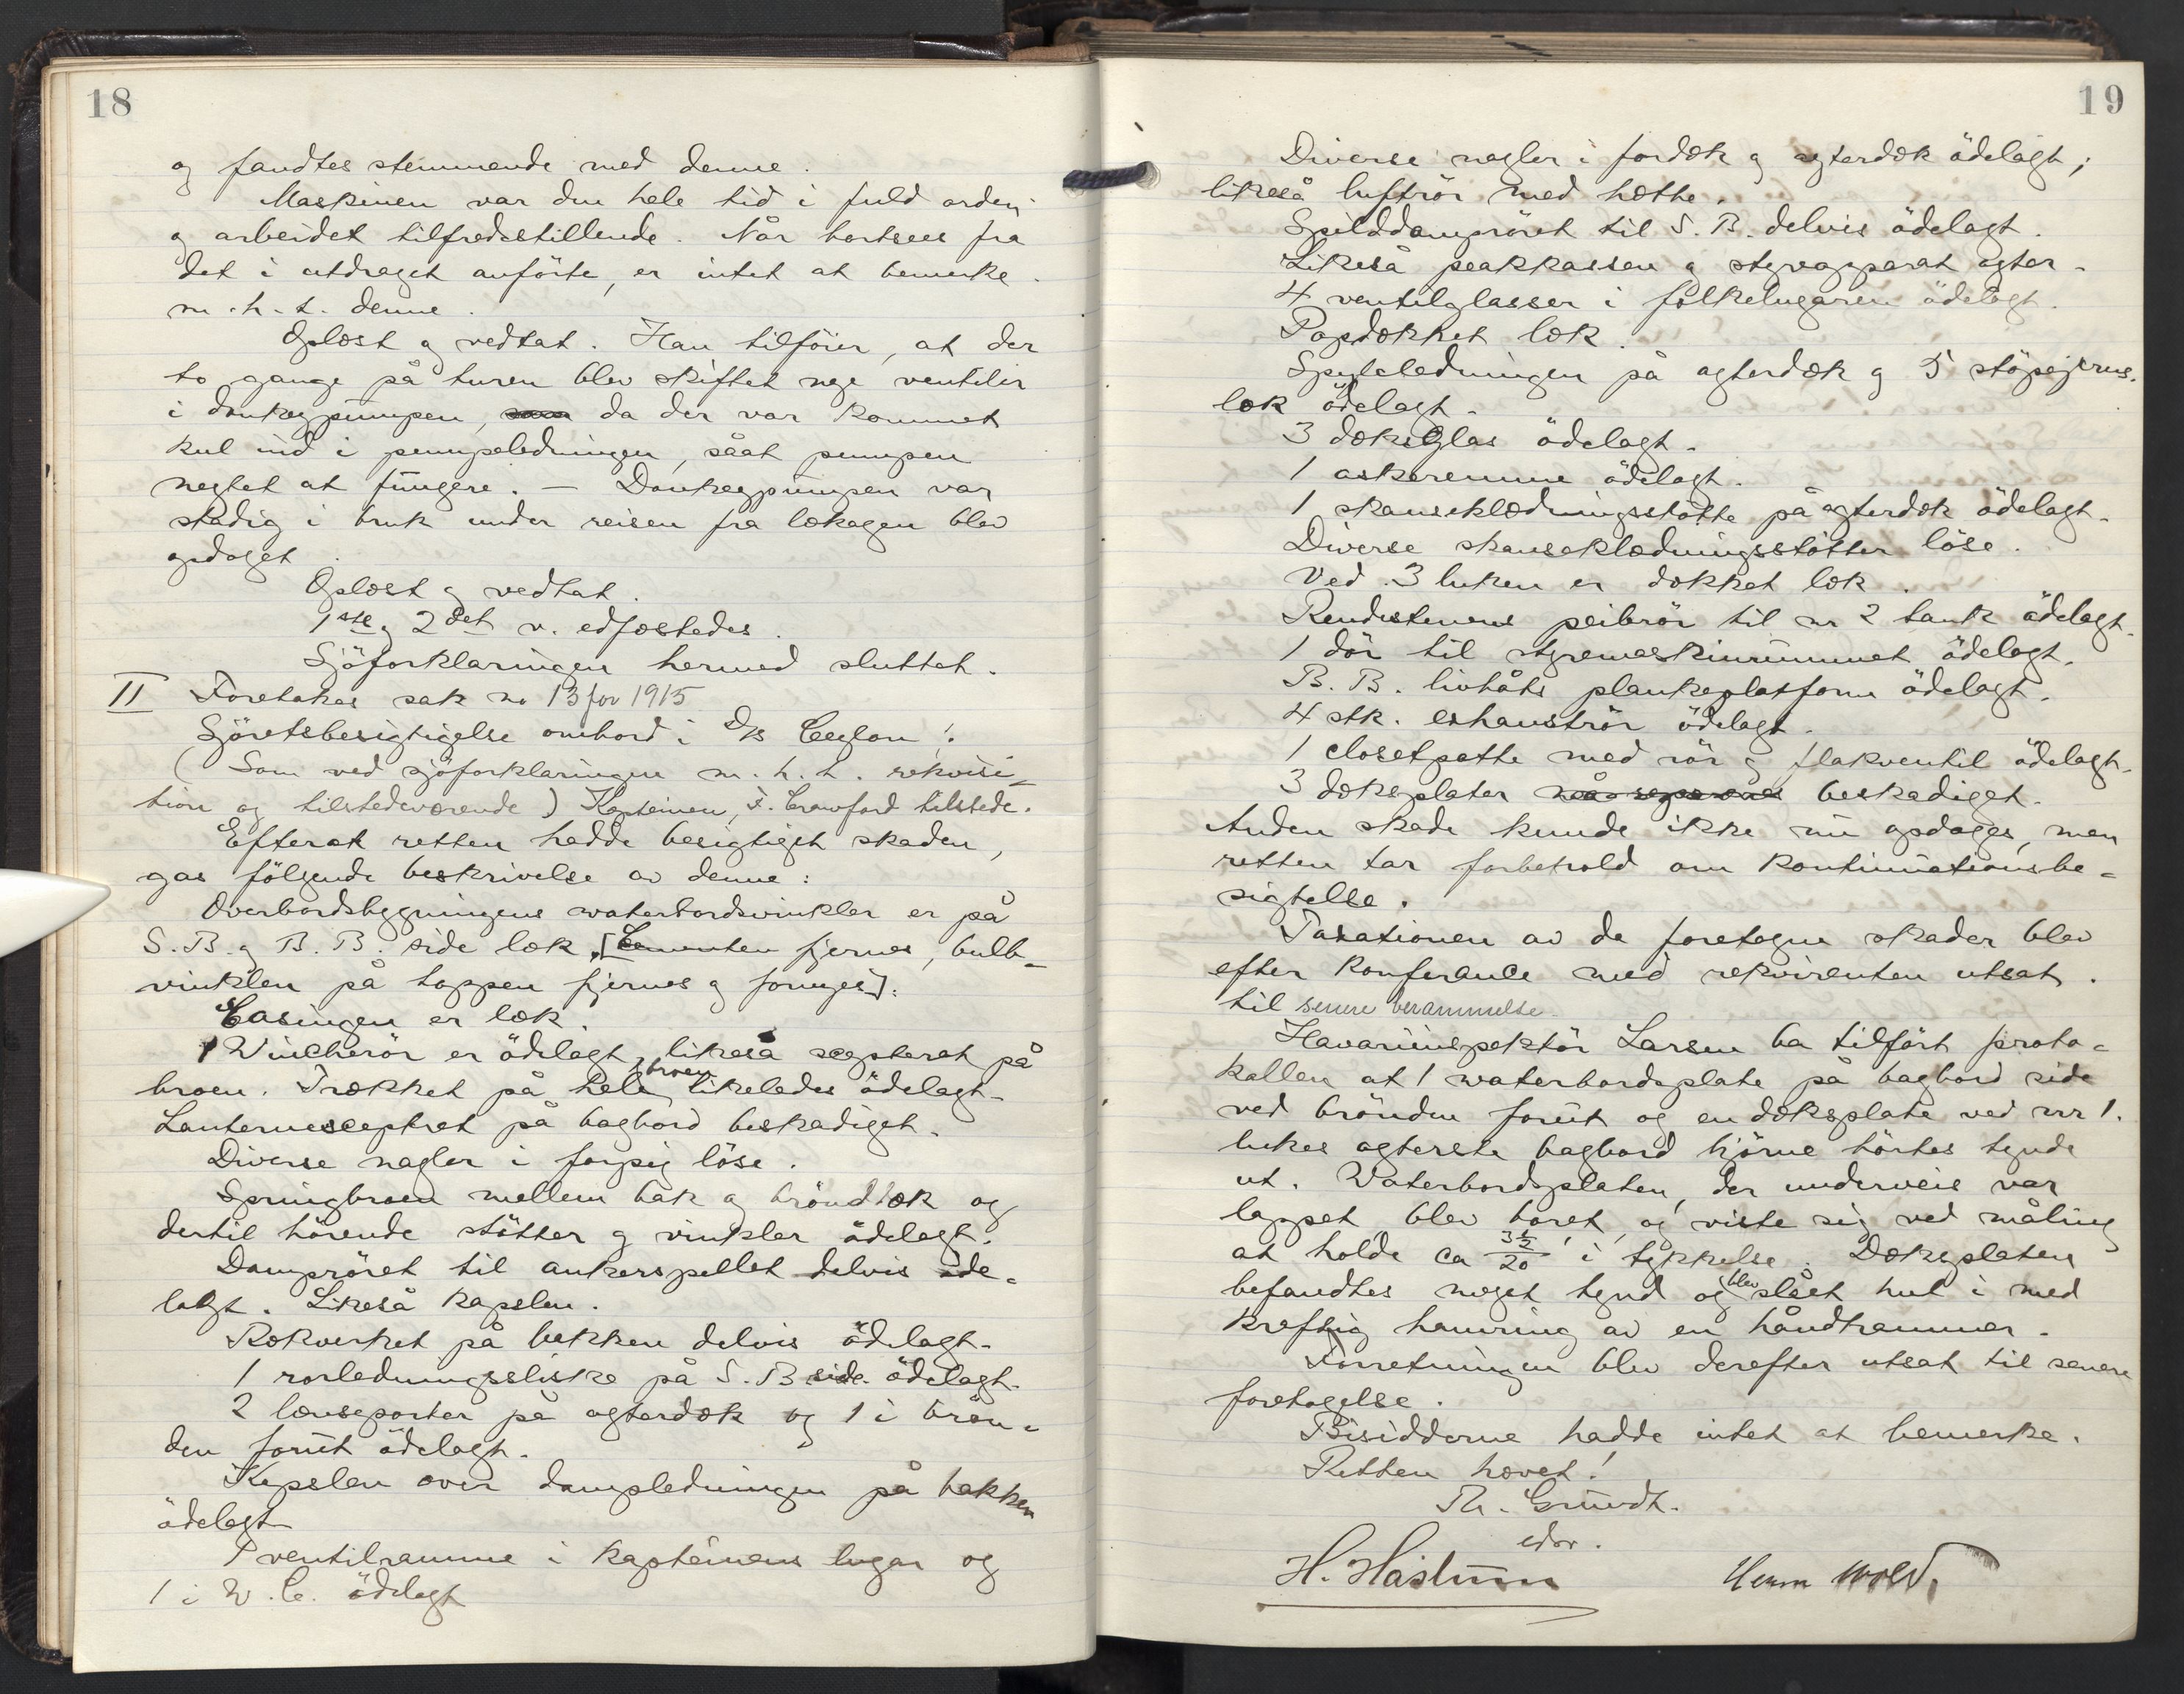 18
og fandtes stemmende med denne.
Maskinen var den hele tid i fuld orden
og arbeidet tilfredsstillende. Når bortsees fra
det i utdraget anförte, er intet at bemerke
m.h.t. denne.
Oplæst og vedtat. Han tilföier, at der
to gange på turen blev skiftet nye ventiler
i donkeypumpen, da der var kommet
kul ind i pumpeledningen, såat pumpen
negtet at fungere. — Donkeypumpen var
stadig i bruk under reisen fra lækagen blev
opdaget.
Oplæst og vedtat.
1ste og 2det v. edfæstedes.
Sjöforklaringen hermed sluttet.
II Foretokes sak no 13 for 1915
Sjöretsbesigtigelse ombord i D/S Ceylon:
(Som ved sjöforklaringen m.h.t. rekvisi-
tion og tilstedeværende) Kapteinen, F. Crawford tilstede.
Efterat retten hadde besigtiget skaden,
gas fölgende beskrivelse av denne:
Overbordsbygningens waterbordsvinkler er på
S.B. og B.B. side læk [Cementen fjernes, bulb-
vinklen på toppen fjernes og fornyes].
Casingen er læk.
1 Wincherör er ödelagt, likeså scepteret på
broen. Trækket på hele broen likeledes ödelagt.
Lanternesceptret på bagbord beskadiget.
Diverse nagler i forpig löse.
Springbroen mellem bak og brönddæk og
dertil hörende stötter og vinkler ödelagt.
Dampröret til ankerspellet delvis öde-
lagt. Likeså kapslen.
Rækverket på bakken delvis ödelagt.
1 rorledningssliske på S.B side ödelagt.
2 lænseporter på agterdæk og 1 i brön-
den forut ödelagt.
Kapslen over dampledningen på bakken
ödelagt
1 ventilramme i kapteinens lugar og
1 i W.C. ödelagt
19
Diverse nagler i fordæk og agterdæk ödelagt;
likeså luftrör med hætte.
Spilddampröret til S.B. delvis ödelagt.
Likeså peakkassen og styreapparat agter.
4 ventilglasser i folkelugaren ödelagt.
Popdækket læk.
Spyleledningen på agterdæk og 5 stöpejerns-
lok ödelagt.
3 dæksglas ödelagt.
1 askerenne ödelagt.
1 skanseklædningsstötte på agterdæk ödelagt.
Diverse skanseklædningsstötter löse.
Ved 3 luken er dækket læk.
Rendestenens peilerör til nr 2 tank ödelagt.
1 dör til styremaskinrummet ödelagt.
B.B. livbåts plankeplatform ödelagt.
4 stk. exhauströr ödelagt.
1 closetpotte med rör og flakventil ödelagt.
3 dæksplater beskadiget.
Anden skade kunde ikke nu opdages, men
retten tar forbehold om kontinuationsbe-
sigtelse.
Taxationen av de foretagne skader blev
efter konferance med rekvirenten utsat
til senere berammelse.
Havariinspektör Larsen ba tilfört proto-
kollen at 1 waterbordsplate på bagbord side
ved brönden forut og en dæksplate ved nr 1.
lukes agterste bagbord hjörne hörtes tynde
ut. Waterbordsplaten, der underveis var
lappet blev boret, og viste sig ved måling
at holde ca 3½/20 " i tykkelse. Dæksplaten
befandtes noget tynd og blev slået hul i med
kraftig hamring av en håndhammer.
Forretningen blev derefter utsat til senere
foretagelse.
Bisidderne hadde intet at bemerke.
Retten hævet!
Th. Grundt.
edsv.
H. Håslum Herm Wold.